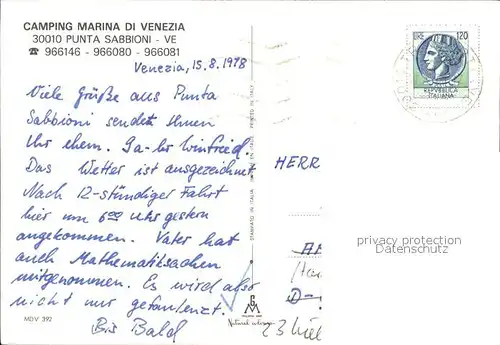 CAMPING MARINA DI VENEZIA
30010 PUNTA SABBIONI - VE
☎ 966146 - 966080 - 966081
Venezia, 15.8.1978
Viele Grüße aus Punta
Sabbioni sendet Ihnen
Ihr ehem. Winfried.
Das Wetter ist ausgezeichnet
Nach 12-stündiger Fahrt
hier um 6⁰⁰ Uhr gestern
angekommen. Vater hat
auch Mathematiksachen
mitgenommen. Es wird also
nicht nur gefaulenzt.
Bis Bald
MDV 392
LIRE 120
REPVBBLICA
ITALIANA
HERR
privacy protection
Datenschutz
D-
23 Kiel